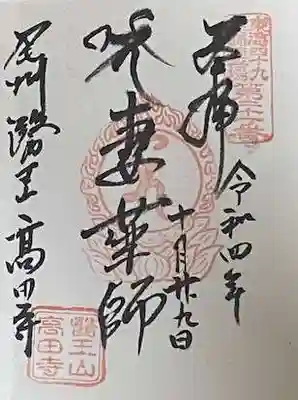 奉拝
令和四年
十月廿九日
妻薬師
尾州醫王高田寺
醫王山
高田寺